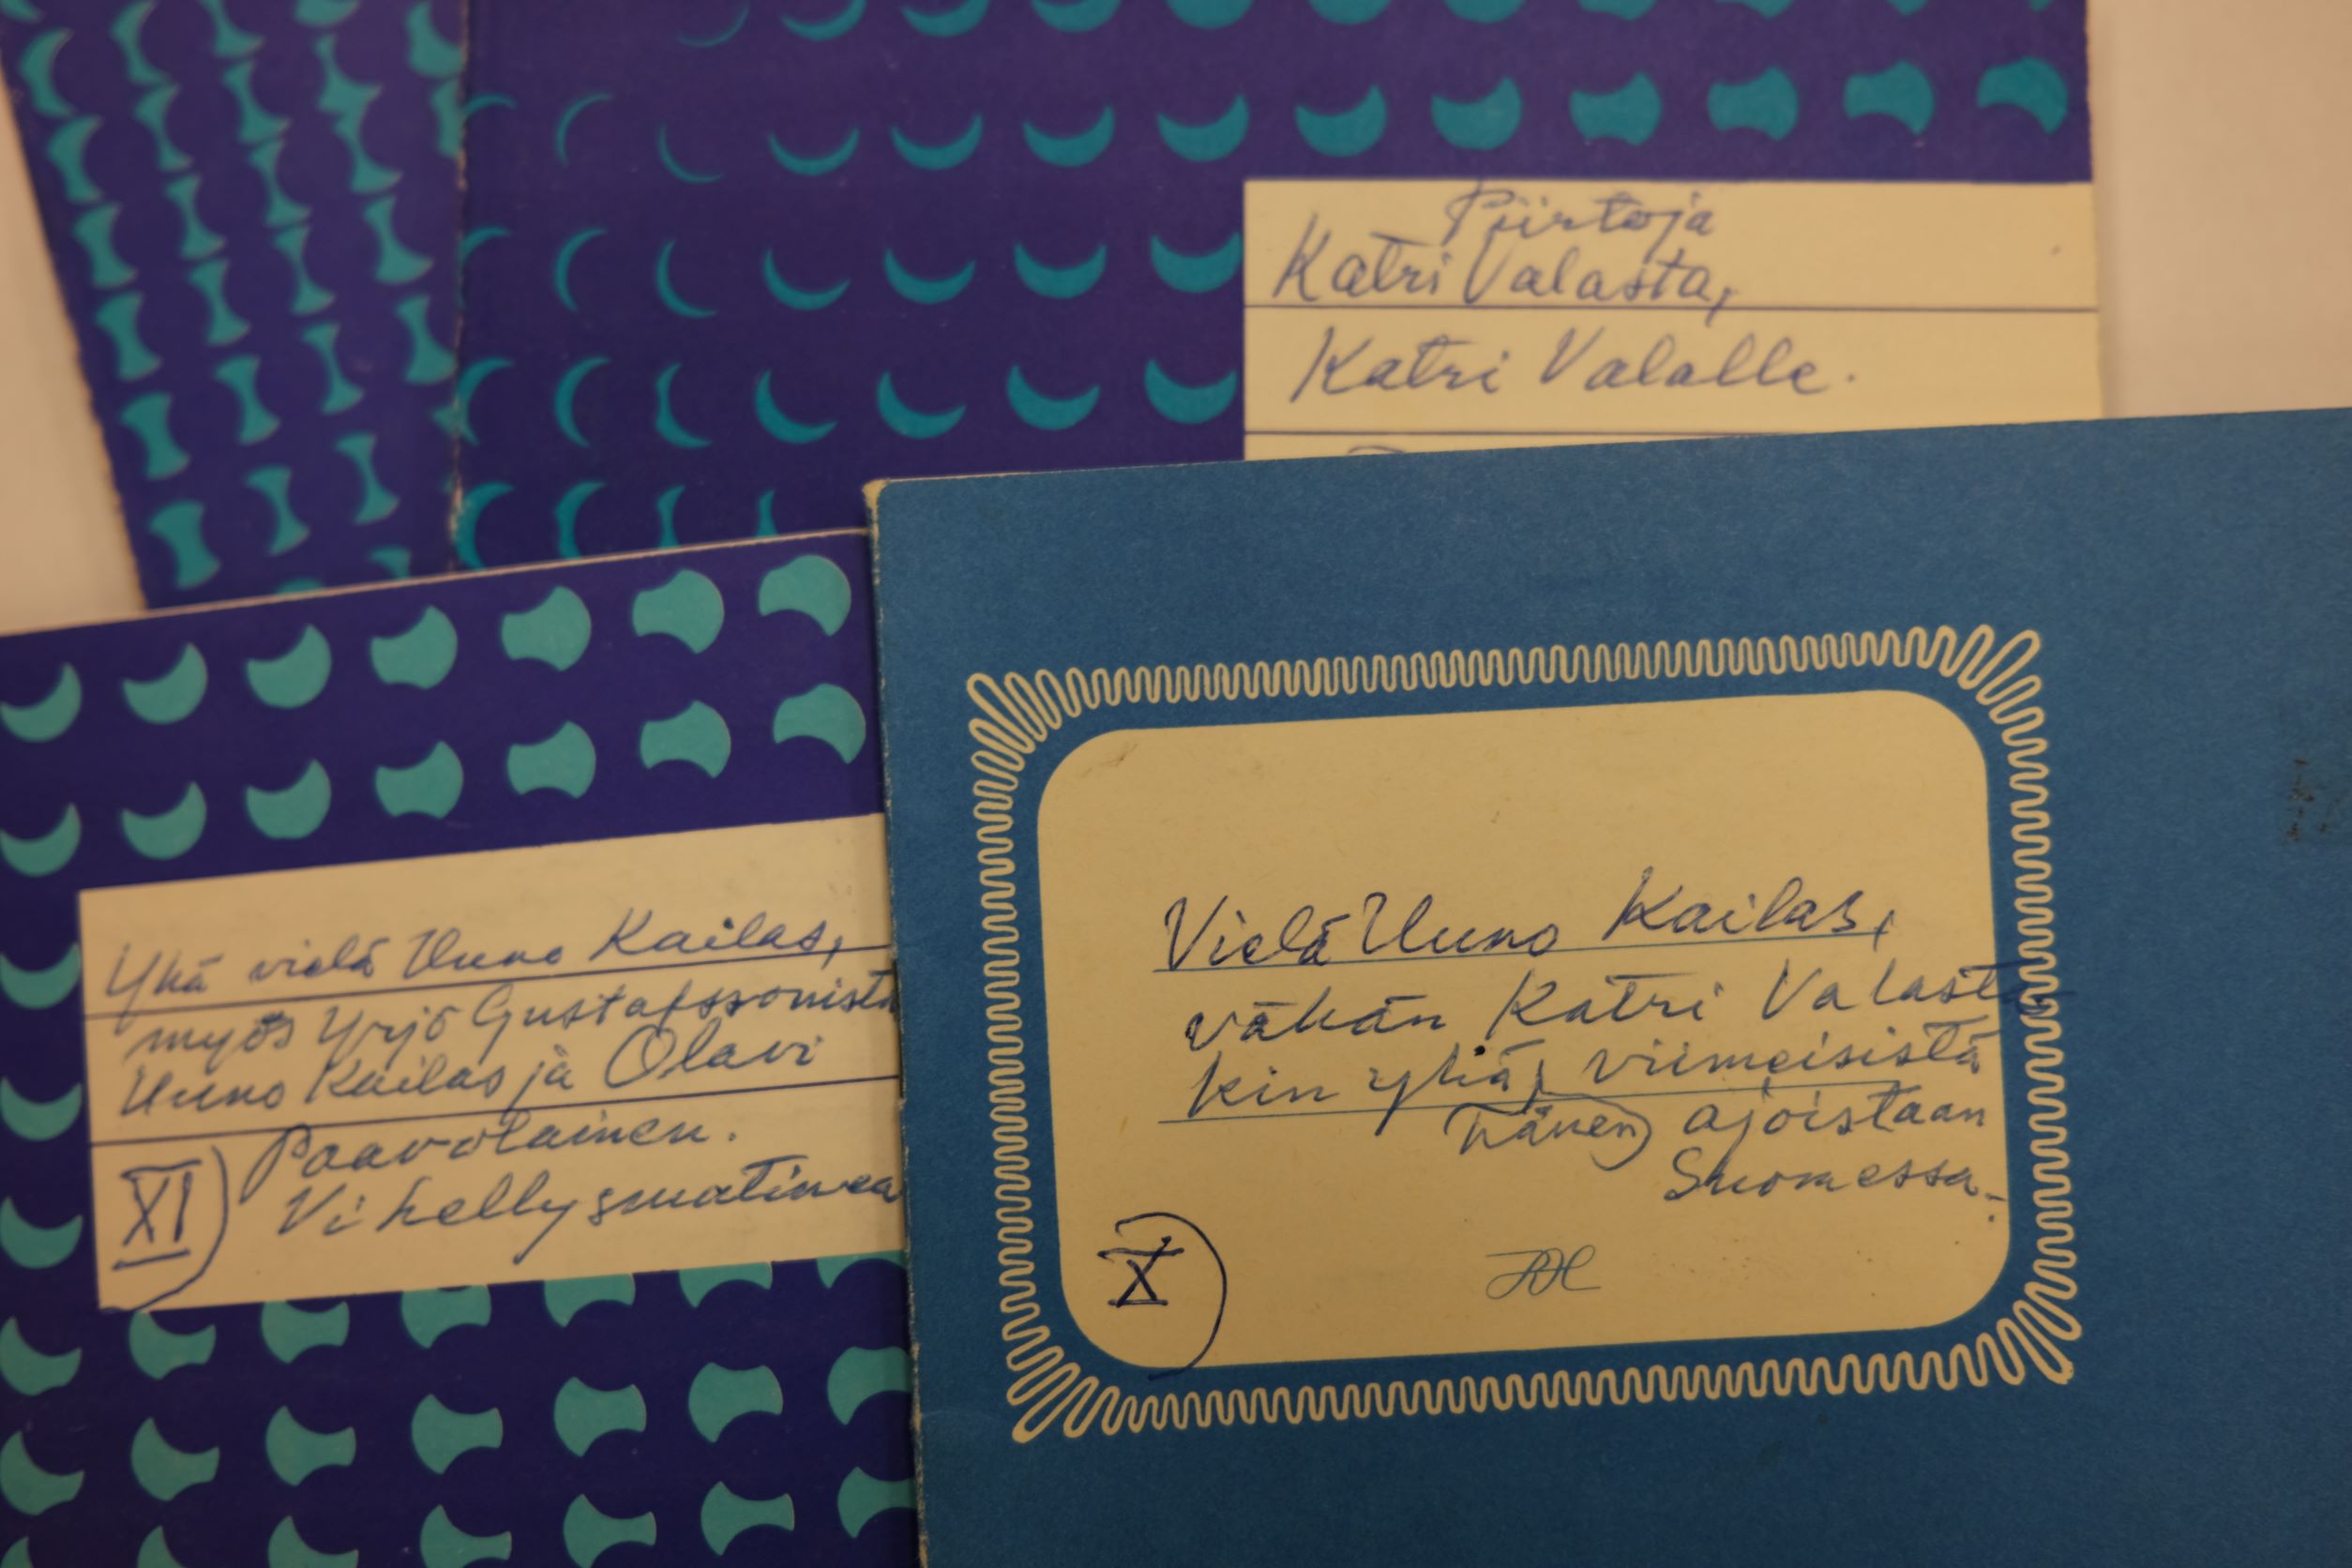 Piirtoja
Katri Valasta,
Katri Valalle.
Yhä vielä Uuno Kailas,
myös Yrjö Gustafssonista
Uuno Kailas ja Olavi
Paavolainen.
XI Vihellysmatinea
Vielä Uuno Kailas,
vähän Katri Valasta
kin yhä, viimeisistä
hänen ajoistaan
Suomessa.
X